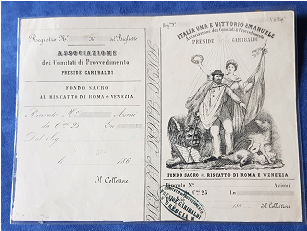 Registro N.
del Prefetto
ASSOCIAZIONE
dei Comitati di Provvedimento
PRESIDE GARIBALDI
FONDO SACRO
AL RISCATTO DI ROMA E VENEZIA
Azioni
da C.mi 25
In
Dal Sig.
186
Il Collettore
ITALIA UNA E VITTORIO EMANUELE
Associazione dei Comitati di Provvedimento
PRESIDE GARIBALDI
FONDO SACRO AL RISCATTO DI ROMA E VENEZIA
Azioni
C.mi 25
In
186
Il Collettore
GARIBALDI